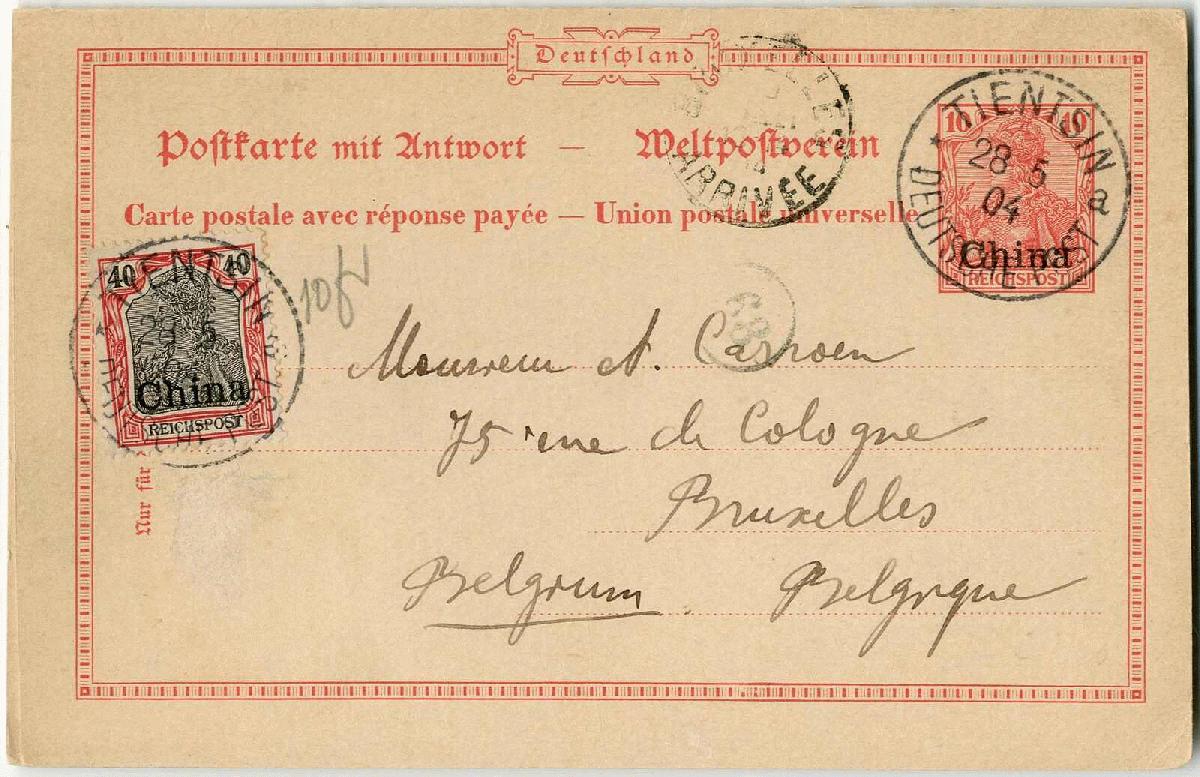 Deutschland
Postkarte mit Antwort — Weltpostverein
Carte postale avec réponse payée — Union postale universelle
ARRIVÉE
10 10
China
REICHSPOST
TIENTSIN
28 5
04
a
DEUTSCHE POST
40 40
China
REICHSPOST
TIENTSIN
28 5
10fr
68
Monsieur A. Carroen
75 rue de Cologne
Bruxelles
Belgium Belgique
Nur für